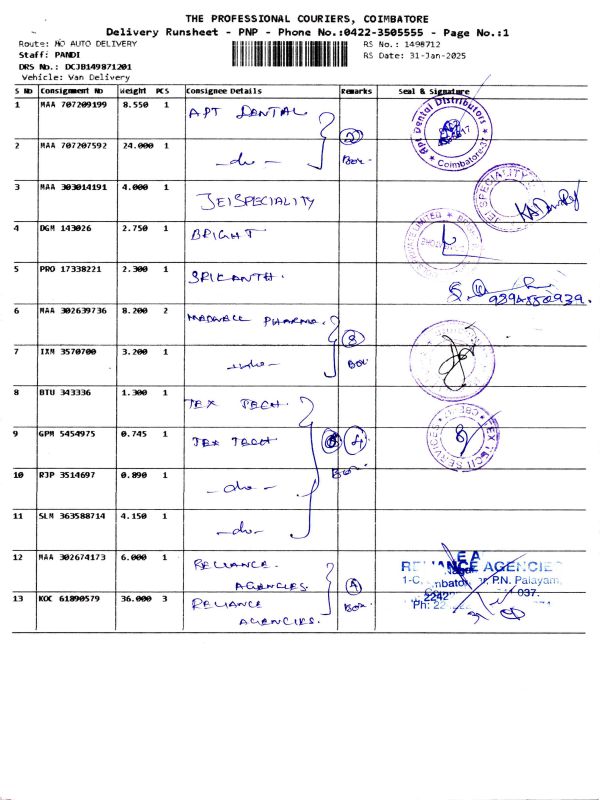 THE PROFESSIONAL COURIERS, COIMBATORE
Delivery Runsheet - PNP - Phone No.:0422-3505555 - Page No.:1
Route: NO AUTO DELIVERY RS No.: 1498712
Staff: PANDI RS Date: 31-Jan-2025
DRS No.: DCJB149871201
Vehicle: Van Delivery
S No Consignment No Weight PCS Consignee Details Remarks Seal & Signature
1 MAA 707209199 8.550 1 APT DENTAL
2 MAA 707207592 24.000 1 -do- 2 Box
Apt Dental Distributors
Coimbatore-37
3 MAA 303014191 4.000 1 JEISPECIALITY
JEI SPECIALITY
4 DGM 143026 2.750 1 BRIGHT
PRIVATE LIMITED
5 PRO 17338221 2.300 1 SRIKANTH.
6 MAA 302639736 8.200 2 PHARMA.
7 IXM 3570700 3.200 1 3 Box
8 BTU 343336 1.300 1 TEX TECH.
9 GPM 5454975 0.745 1 TEX TECH 4 Box
TEX TECH SERVICES
10 RJP 3514697 0.890 1 -do-
11 SLM 363588714 4.150 1 -do-
12 MAA 302674173 6.000 1 RELIANCE AGENCIES.
13 KOC 61890579 36.000 3 RELIANCE AGENCIES. 4 Box
RELIANCE AGENCIES
P.N. Palayam,
037.